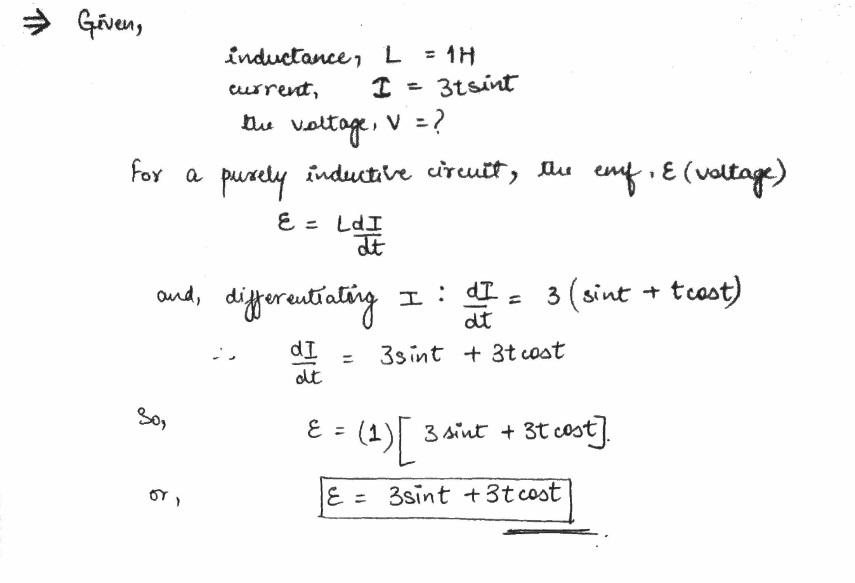 ⇒ Given,
inductance, L = 1H
current, I = 3tsint
the voltage, V = ?
For a purely inductive circuit, the emf, ε (voltage)
ε = LdI/dt
and, differentiating I : dI/dt = 3 (sint + tcost)
∴ dI/dt = 3sint + 3tcost
So, ε = (1)[3 sint + 3tcost].
or, ε = 3sint + 3tcost